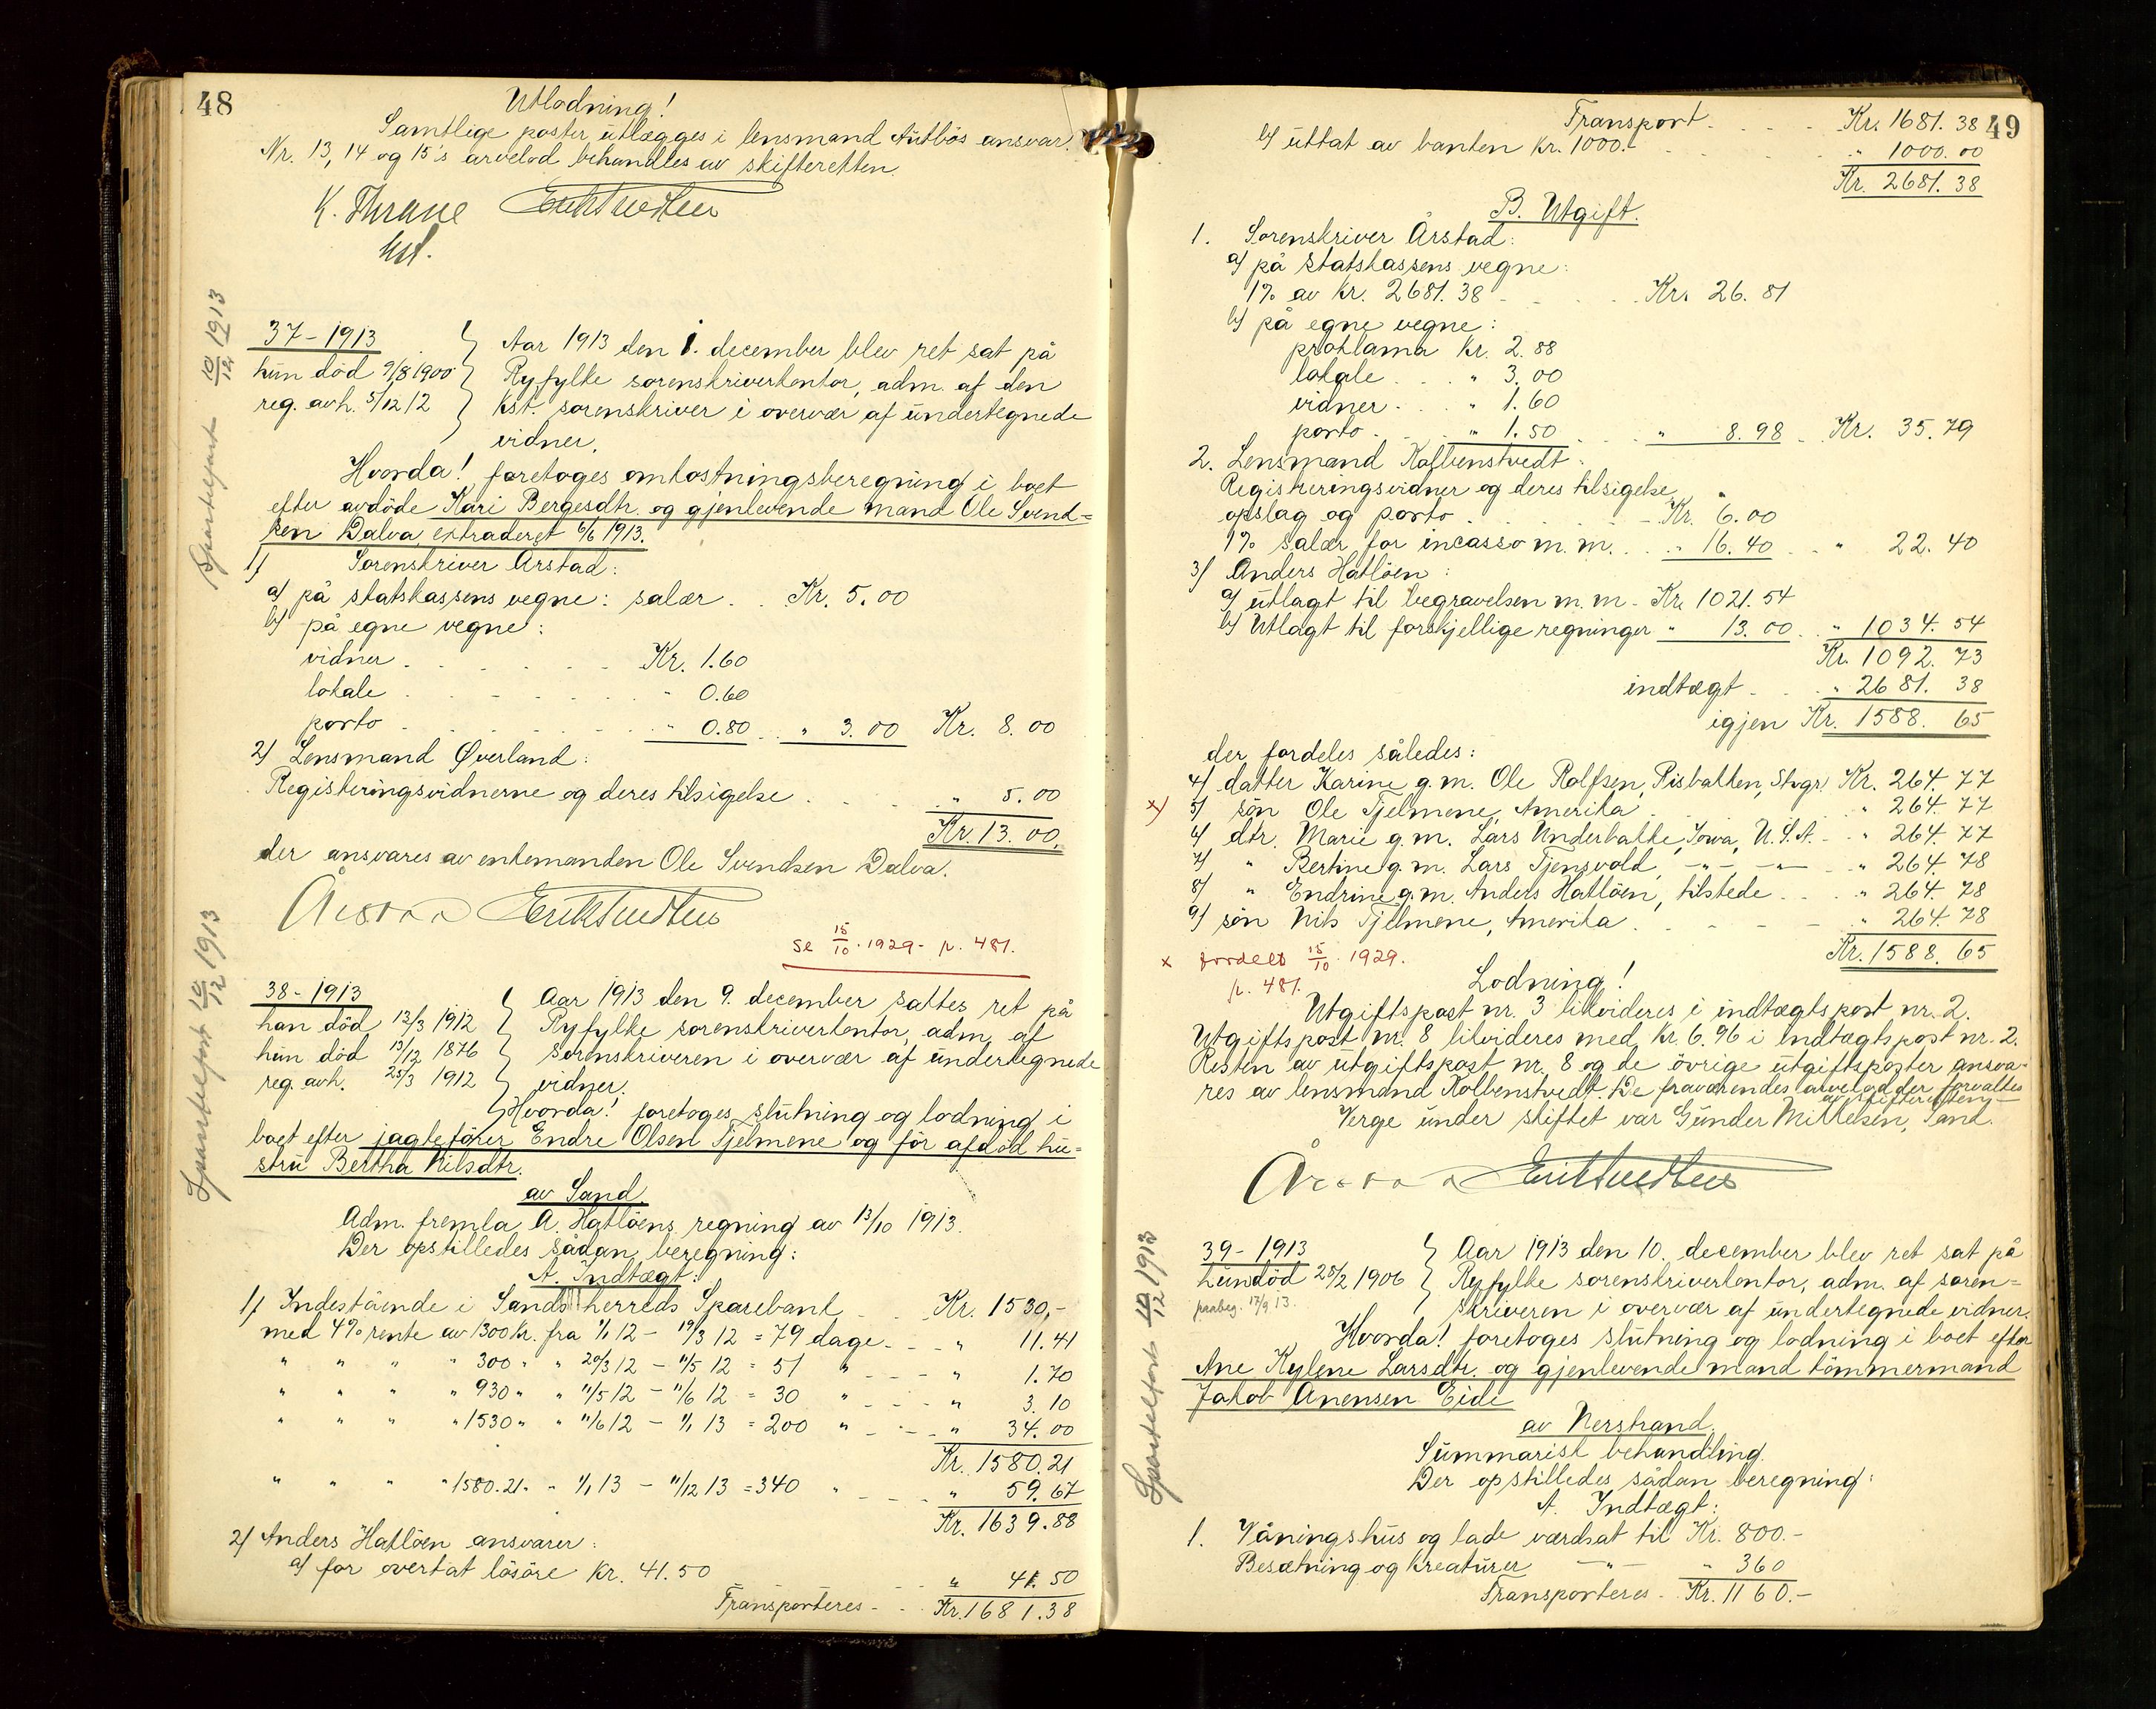 48
Utlodning!
Samtlige poster utlægges i lensmand Autbös ansvar.
Nr. 13, 14 og 15's arvelod behandles av skifteretten.
K. Thrane
kst.
Sportelført 10/12 1913
37-1913
hun död 9/8 1900
reg. avh. 5/12 12
Aar 1913 den 1. december blev ret sat på
Ryfylke sorenskriverkontor, adm. af den
kst. sorenskriver i overvær af undertegnede
vidner.
Hvorda! foretoges omkostningsberegning i boet
efter avdöde Kari Bergesdtr. og gjenlevende mand Ole Svend=
sen Dalva, extraderet 6/6 1913.
1) Sorenskriver Årstad:
a) på statskassens vegne: salær . . Kr. 5.00
b) på egne vegne:
vidner . . . . Kr. 1.60
lokale . . . . " 0.60
porto . . . . " 0.80 . . " 3.00 Kr. 8.00
2) Lensmand Øverland:
Registreringsvidnerne og deres tilsigelse . . . . " 5.00
Kr. 13.00.
der ansvares av enkemanden Ole Svendsen Dalva.
se 15/10 1929 - p. 481.
Sportelført 10/12 1913
38-1913
han död 13/3 1912
hun död 13/12 1876
reg. avh. 25/3 1912
Aar 1913 den 9. december sattes ret på
Ryfylke sorenskriverkontor, adm. af
sorenskriveren i overvær af undertegnede
vidner.
Hvorda! foretoges slutning og lodning i
boet efter jagtefører Endre Olsen Tjelmene og för afdöd hu=
stru Bertha Nilsdtr.
av Sand.
Adm. fremla A. Hatlöens regning av 13/10 1913.
Der opstilledes sådan beregning:
A. Indtægt:
1) Indestående i Sands herreds Sparebank . . Kr. 1530,-
med 4% rente av 1300 kr. fra 1/1 12 - 19/3 12 = 79 dage - - " 11.41
" " " " 300 " " 20/3 12 - 11/5 12 = 51 " - - - " 1.70
" " " " 930 " " 11/5 12 - 11/6 12 = 30 " - - - " 3.10
" " " " 1530 " " 11/6 12 - 1/1 13 = 200 " - - - " 34.00
Kr. 1580.21
" " " " 1580.21 " " 1/1 13 - 11/12 13 = 340 " - - - " 59.67
Kr. 1639.88
2) Anders Hatlöen ansvarer:
a) for overtat lösöre Kr. 41.50 . . . . " 41.50
Transporteres - . . Kr. 1681.38
49
Transport . . . . Kr. 1681.38
b) uttat av banken Kr. 1000.- . . . . " 1000.00
Kr. 2681.38
B. Utgift.
1. Sorenskriver Årstad:
a) på statskassens vegne:
1% av kr. 2681.38 . . . . Kr. 26.81
b) på egne vegne:
proklama Kr. 2.88
lokale . . . " 3.00
vidner . . . " 1.60
porto . . . " 1.50 . . . " 8.98 . Kr. 35.79
2. Lensmand Kolbenstvedt:
Registreringsvidner og deres tilsigelse,
opslag og porto . . . . Kr. 6.00
1% salær for incasso m. m. . . . " 16.40 . . " 22.40
3) Anders Hatlöen:
a) utlagt til begravelsen m. m. Kr. 1021.54
b) Utlagt til forskjellige regninger " 13.00 . . " 1034.54
Kr. 1092.73
indtægt . . . " 2681.38
igjen Kr. 1588.65
der fordeles således:
4) datter Karine g. m. Ole Rolfsen, Risbakken, Stvgr. Kr. 264.77
x) 5) sön Ole Tjelmene, Amerika . . . . " 264.77
6) dtr. Marie g. m. Lars Underbakke, Iowa, U.S.A. - " 264.77
7) " Bertine g. m. Lars Tjensvold, -"- -"- " 264.78
8) " Endrine g. m. Anders Hatlöen, tilstede . . . " 264.78
9) sön Nils Tjelmene, Amerika . . . . " 264.78
Kr. 1588.65
x fordelt 15/10 1929.
p. 481.
Lodning!
Utgiftspost nr. 3 likvideres i indtægtspost nr. 2.
Utgiftspost nr. 8 likvideres med kr. 6.96 i indtægtspost nr. 2.
Resten av utgiftspost nr. 8 og de övrige utgiftsposter ansva-
res av lensmand Kolbenstvedt. De fraværendes arvelodder forvaltes
av skifteretten.
Verge under skiftet var Gunder Mikkelsen, Sand.
Sportelført 10/12 1913
39-1913
hun död 25/2 1906
paabeg. 17/9 13.
Aar 1913 den 10. december blev ret sat på
Ryfylke sorenskriverkontor, adm. af soren=
skriveren i overvær af undertegnede vidner.
Hvorda! foretoges slutning og lodning i boet efter
Ane Kylene Larsdtr. og gjenlevende mand tömmermand
Jakob Anensen Eide
av Nerstrand.
Summarisk behandling.
Der opstilledes sådan beregning:
A. Indtægt:
1. Våningshus og lade værdsat til Kr. 800.-
Besætning og kreaturer -"- " 360
Transporteres . Kr. 1160.-